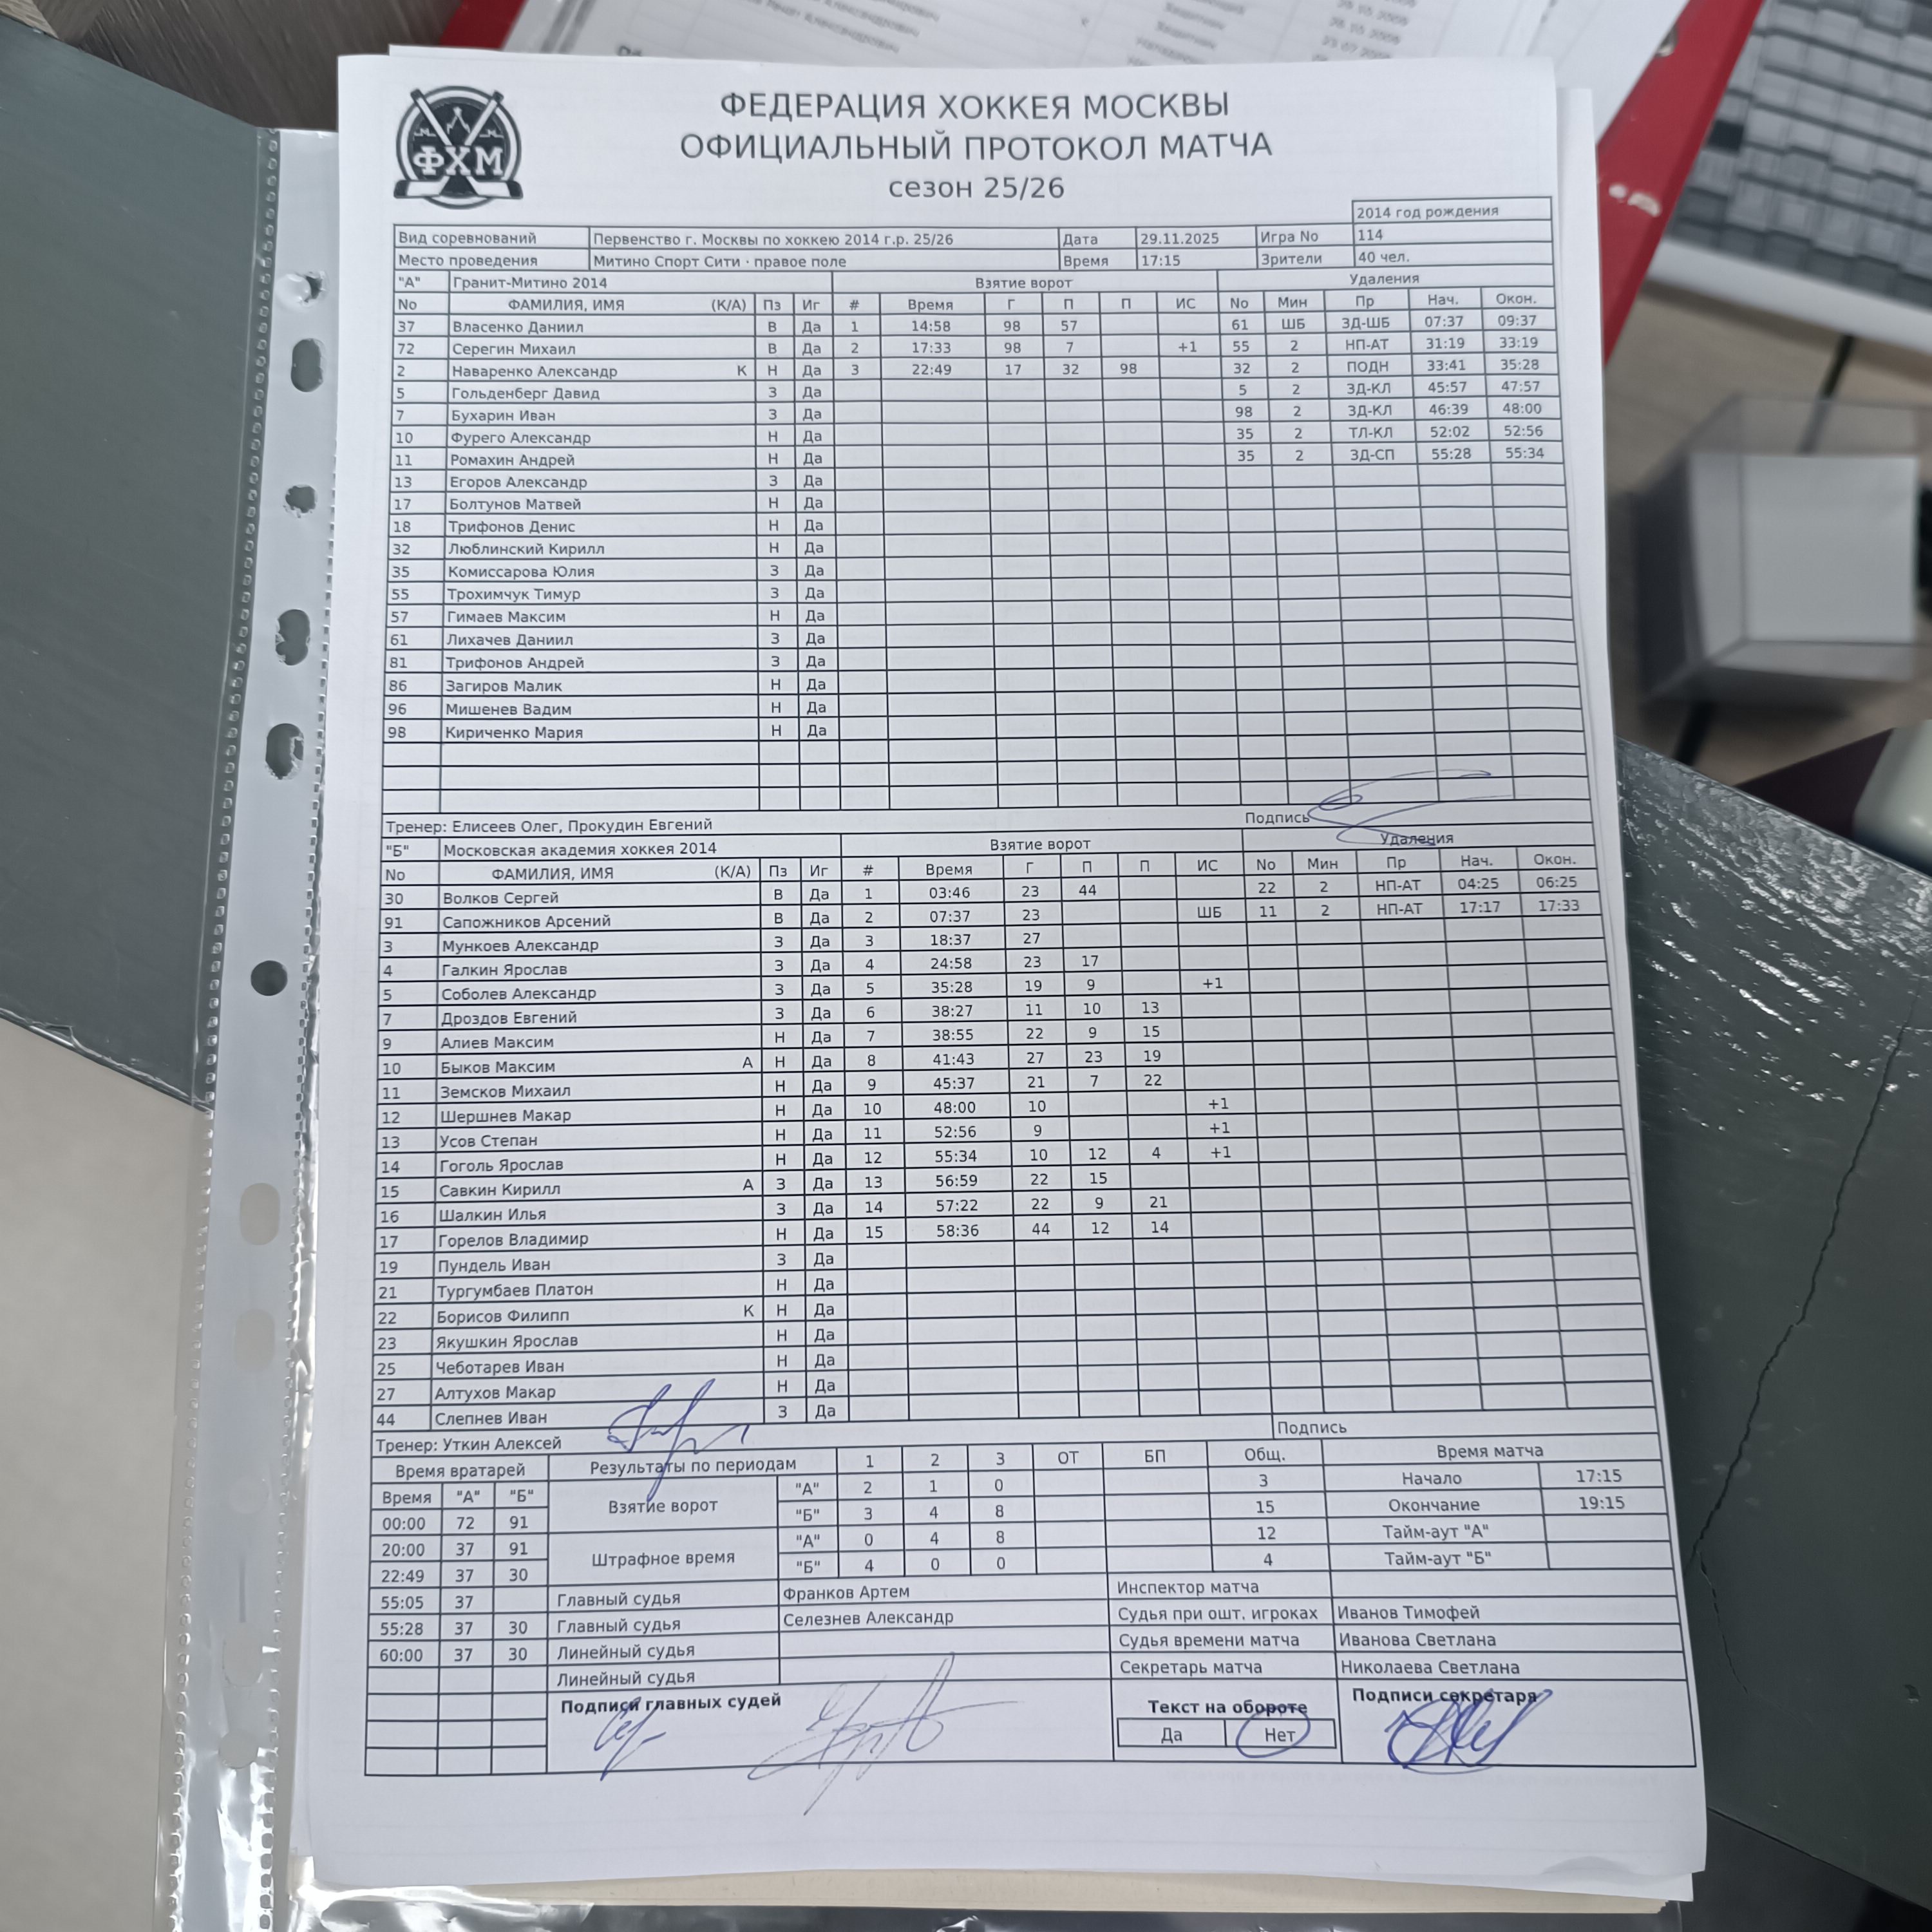 ФХМ
ФЕДЕРАЦИЯ ХОККЕЯ МОСКВЫ
ОФИЦИАЛЬНЫЙ ПРОТОКОЛ МАТЧА
сезон 25/26
2014 год рождения
Вид соревнований Первенство г. Москвы по хоккею 2014 г.р. 25/26 Дата 29.11.2025 Игра No 114
Место проведения Митино Спорт Сити · правое поле Время 17:15 Зрители 40 чел.
"А" Гранит-Митино 2014 Взятие ворот Удаления
No ФАМИЛИЯ, ИМЯ (К/А) Пз Иг # Время Г П П ИС No Мин Пр Нач. Окон.
37 Власенко Даниил В Да 1 14:58 98 57 61 ШБ ЗД-ШБ 07:37 09:37
72 Серегин Михаил В Да 2 17:33 98 7 +1 55 2 НП-АТ 31:19 33:19
2 Наваренко Александр К Н Да 3 22:49 17 32 98 32 2 ПОДН 33:41 35:28
5 Гольденберг Давид З Да 5 2 ЗД-КЛ 45:57 47:57
7 Бухарин Иван З Да 98 2 ЗД-КЛ 46:39 48:00
10 Фурего Александр Н Да 35 2 ТЛ-КЛ 52:02 52:56
11 Ромахин Андрей Н Да 35 2 ЗД-СП 55:28 55:34
13 Егоров Александр З Да
17 Болтунов Матвей Н Да
18 Трифонов Денис Н Да
32 Люблинский Кирилл Н Да
35 Комиссарова Юлия З Да
55 Трохимчук Тимур З Да
57 Гимаев Максим Н Да
61 Лихачев Даниил З Да
81 Трифонов Андрей З Да
86 Загиров Малик Н Да
96 Мишенев Вадим Н Да
98 Кириченко Мария Н Да
Тренер: Елисеев Олег, Прокудин Евгений Подпись
"Б" Московская академия хоккея 2014 Взятие ворот Удаления
No ФАМИЛИЯ, ИМЯ (К/А) Пз Иг # Время Г П П ИС No Мин Пр Нач. Окон.
30 Волков Сергей В Да 1 03:46 23 44 22 2 НП-АТ 04:25 06:25
91 Сапожников Арсений В Да 2 07:37 23 ШБ 11 2 НП-АТ 17:17 17:33
3 Мункоев Александр З Да 3 18:37 27
4 Галкин Ярослав З Да 4 24:58 23 17
5 Соболев Александр З Да 5 35:28 19 9 +1
7 Дроздов Евгений З Да 6 38:27 11 10 13
9 Алиев Максим Н Да 7 38:55 22 9 15
10 Быков Максим А Н Да 8 41:43 27 23 19
11 Земсков Михаил Н Да 9 45:37 21 7 22
12 Шершнев Макар Н Да 10 48:00 10 +1
13 Усов Степан Н Да 11 52:56 9 +1
14 Гоголь Ярослав Н Да 12 55:34 10 12 4 +1
15 Савкин Кирилл А З Да 13 56:59 22 15
16 Шалкин Илья З Да 14 57:22 22 9 21
17 Горелов Владимир Н Да 15 58:36 44 12 14
19 Пундель Иван З Да
21 Тургумбаев Платон Н Да
22 Борисов Филипп К Н Да
23 Якушкин Ярослав Н Да
25 Чеботарев Иван Н Да
27 Алтухов Макар Н Да
44 Слепнев Иван З Да
Тренер: Уткин Алексей Подпись
Время вратарей Результаты по периодам 1 2 3 ОТ БП Общ. Время матча
Время "А" "Б" Взятие ворот "А" 2 1 0 3 Начало 17:15
00:00 72 91 "Б" 3 4 8 15 Окончание 19:15
20:00 37 91 Штрафное время "А" 0 4 8 12 Тайм-аут "А"
22:49 37 30 "Б" 4 0 0 4 Тайм-аут "Б"
55:05 37 Главный судья Франков Артем Инспектор матча
55:28 37 30 Главный судья Селезнев Александр Судья при ошт. игроках Иванов Тимофей
60:00 37 30 Линейный судья Судья времени матча Иванова Светлана
Линейный судья Секретарь матча Николаева Светлана
Подписи главных судей Текст на обороте Подписи секретаря
Да Нет